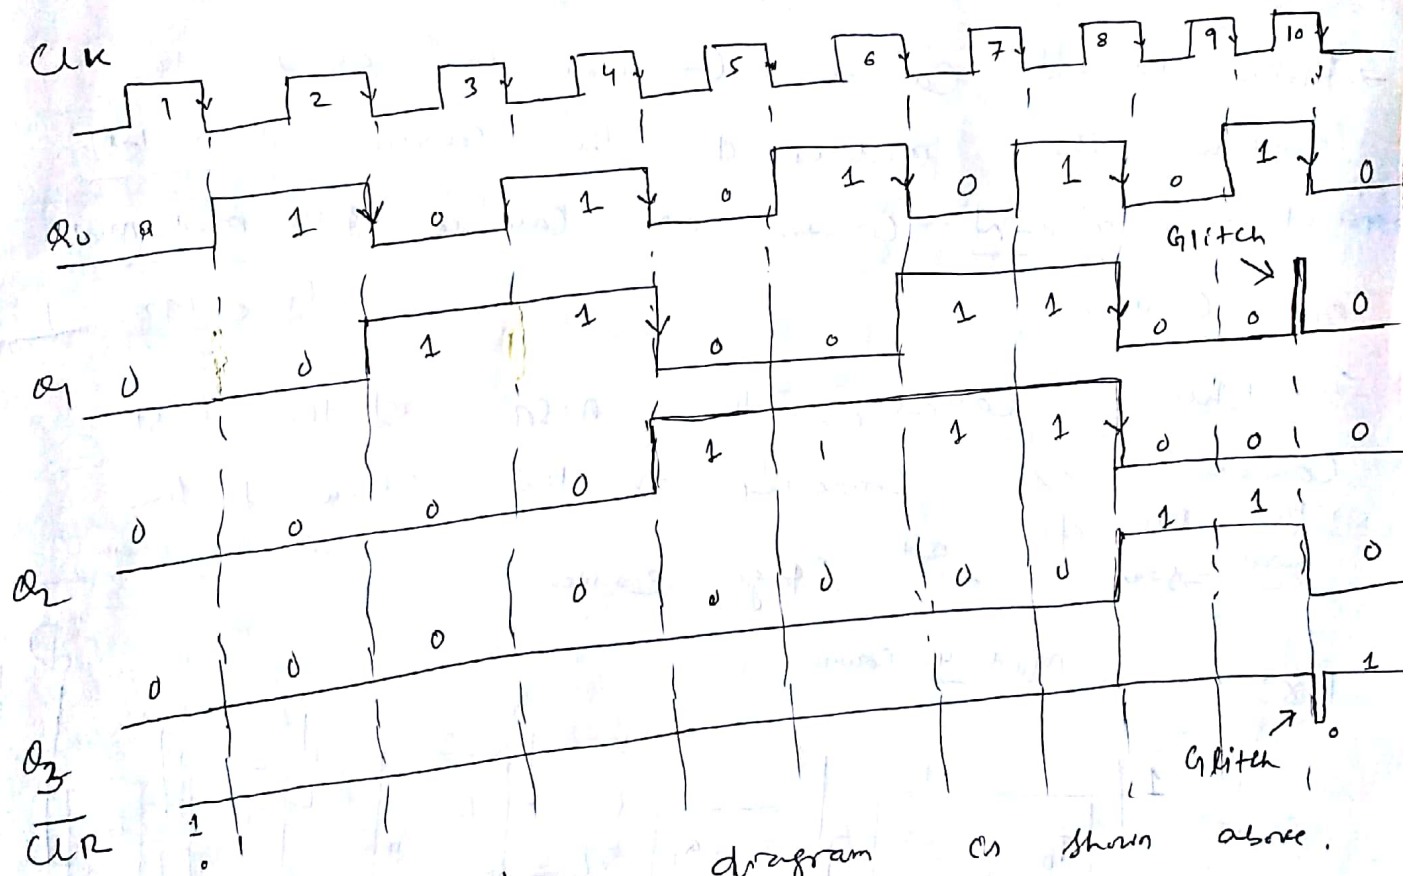 CLK 1 2 3 4 5 6 7 8 9 10
Q0 0 1 0 1 0 1 0 1 0 1 0
Glitch
Q1 0 0 1 1 0 0 1 1 0 0 0
Q2 0 0 0 0 1 1 1 1 0 0 0
Q3 0 0 0 0 0 0 0 0 1 1 0
CLR 1 0 1
Glitch
diagram is shown above.